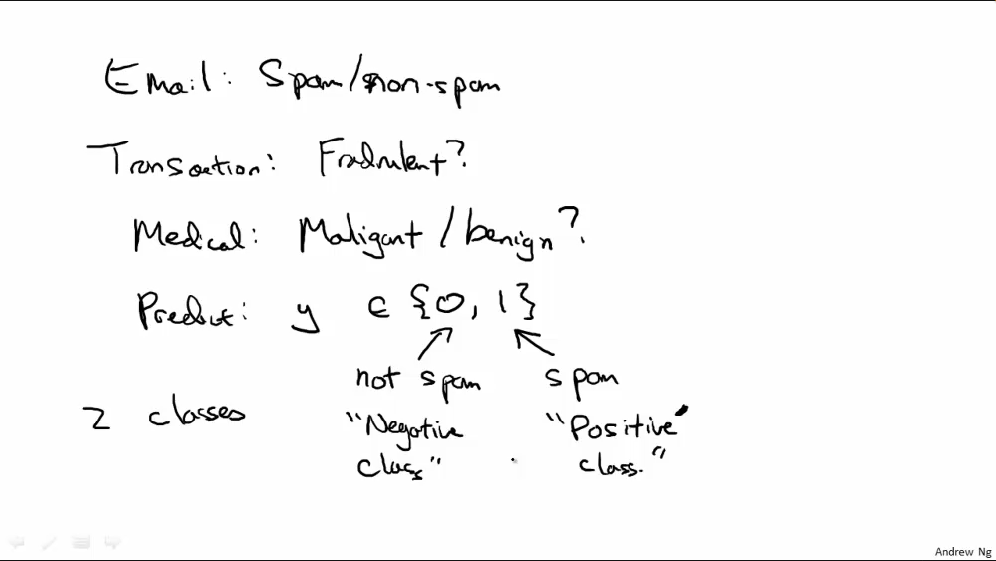 Email: Spam/non-spam
Transaction: Fradulent?
Medical: Maligant / benign?
Predict: y ∈ {0, 1}
not spam
spam
2 classes
"Negative class"
"Positive class."
Andrew Ng